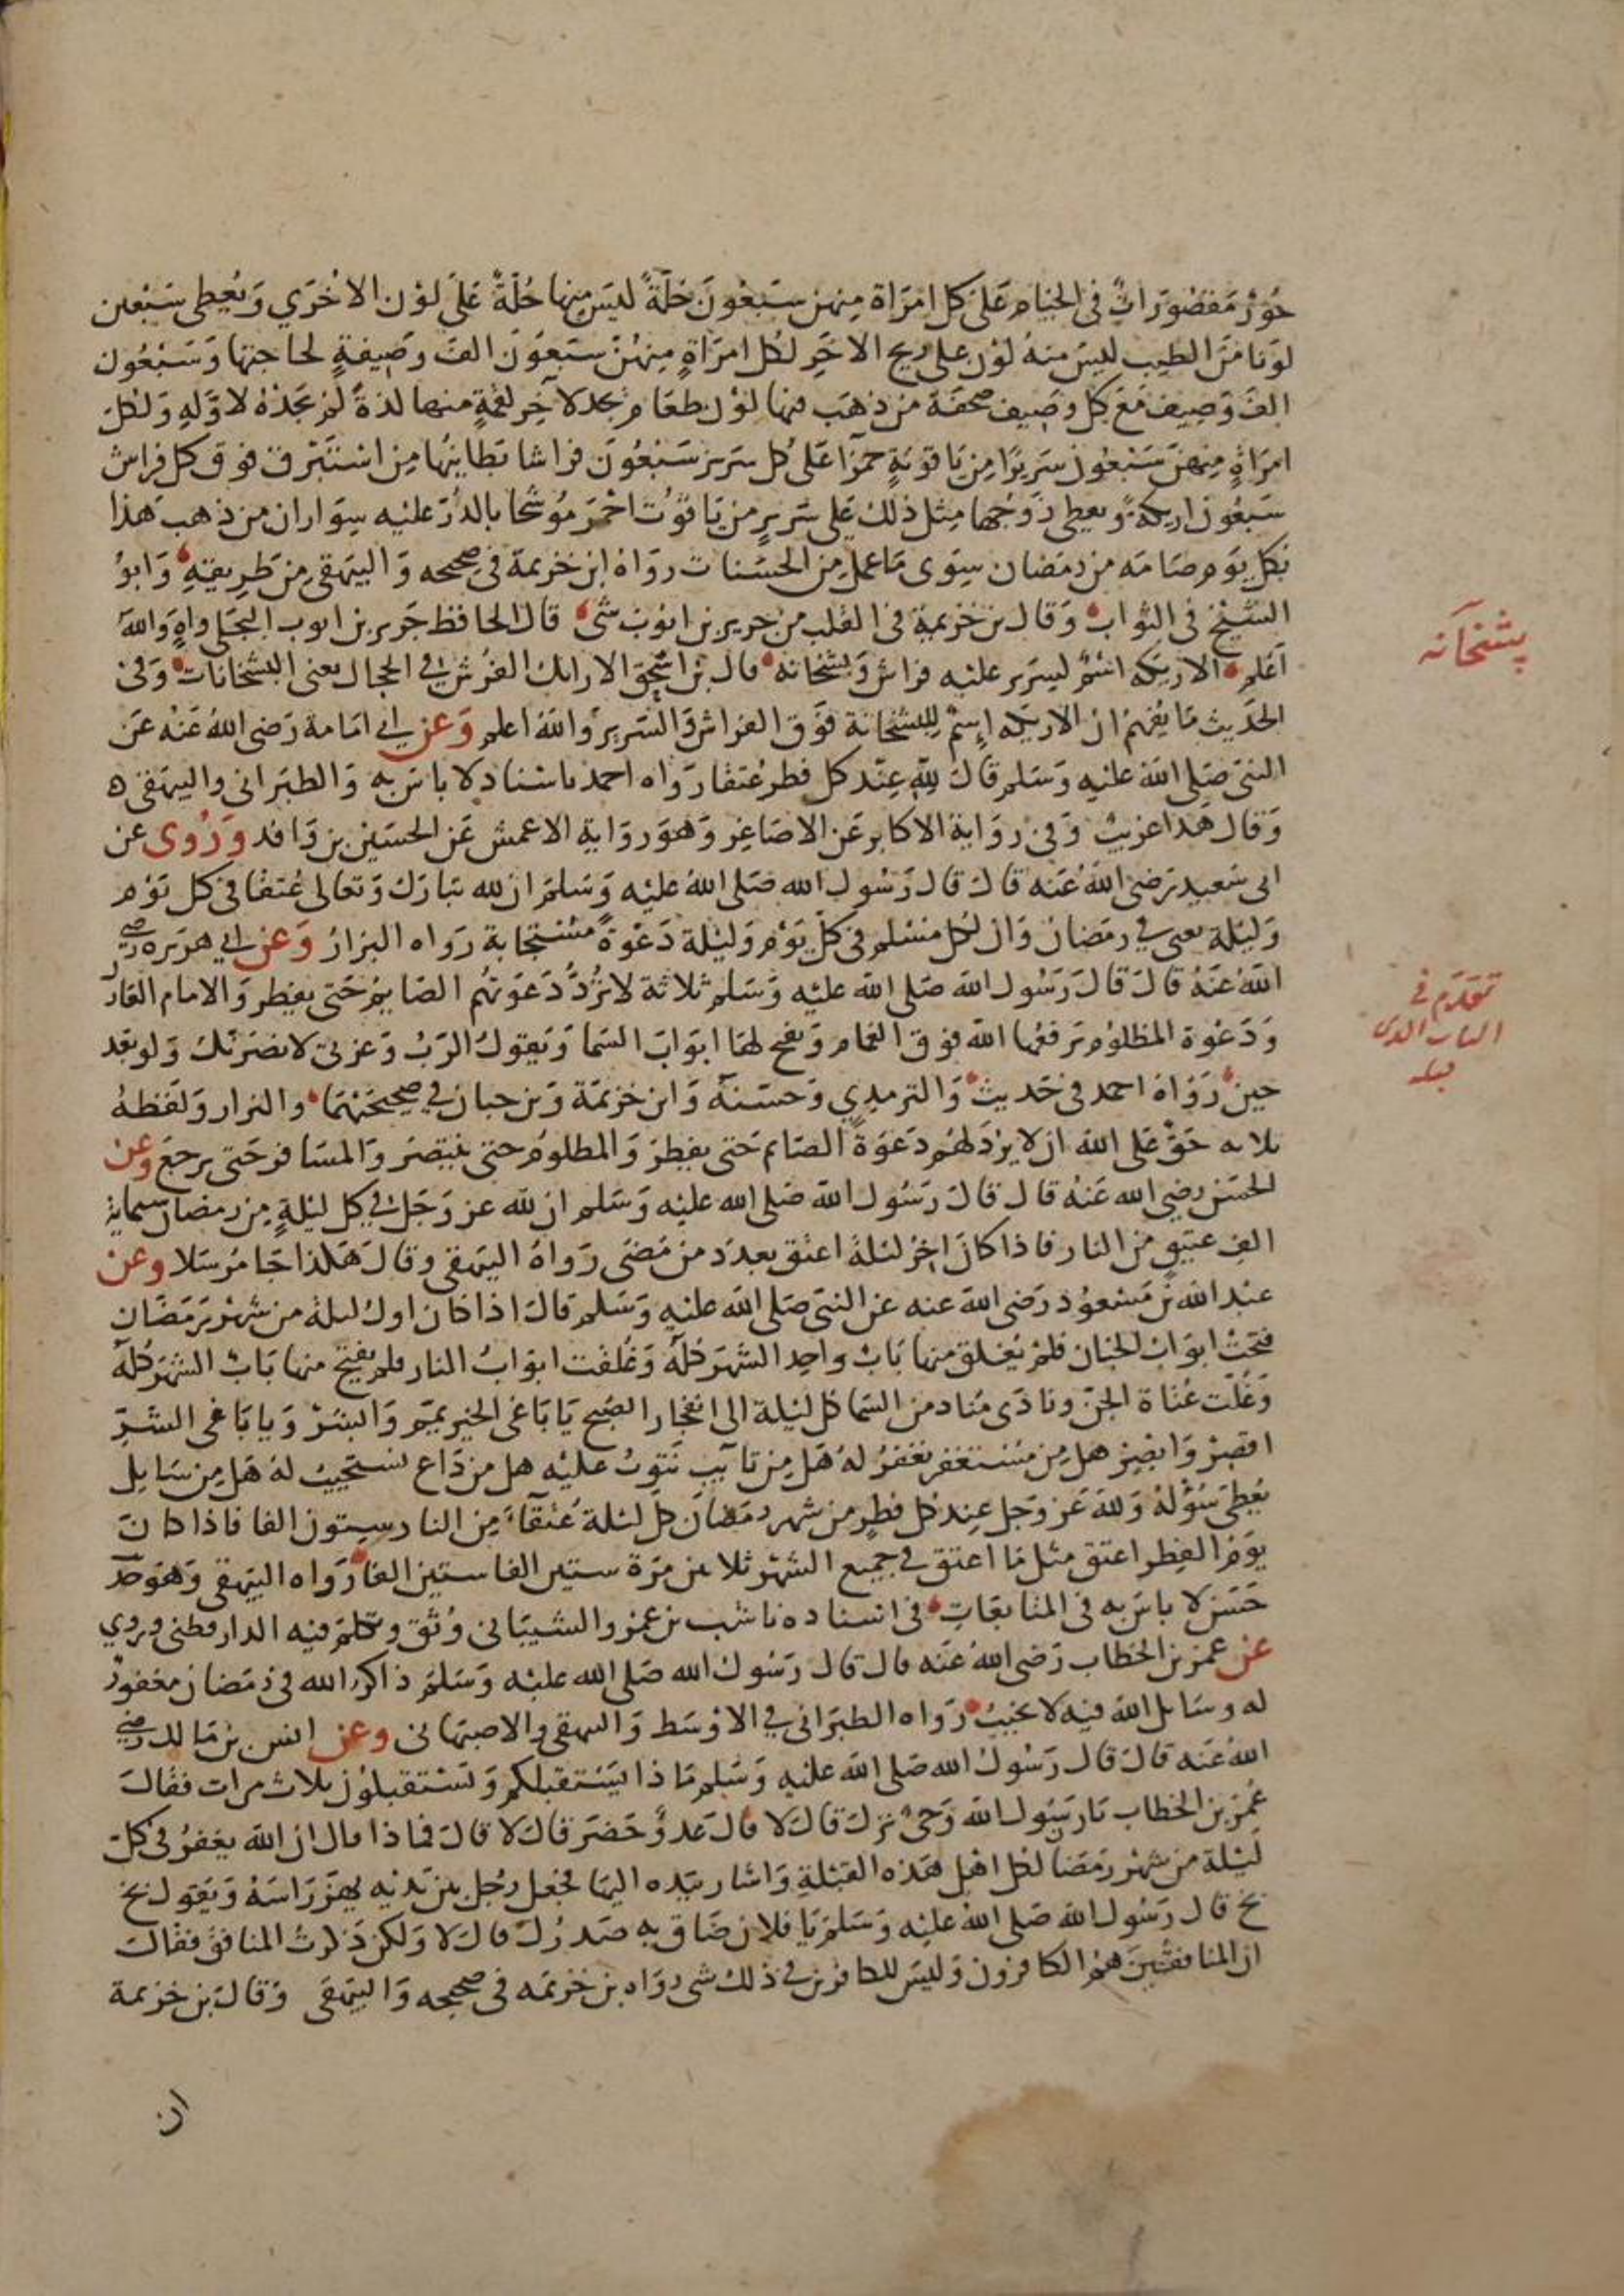 حُوْرٌ مَقصُوْرَاتٌ فى الخيام عَلى كل امْرَاة مِنهن سَبعُونَ حُلّةً ليسَ مِنها حُلّةٌ عَلَى لوْن الاخْرَي وَيُعطى سَبْعين
لوَنا مِنَ الطيب ليسَ منهُ لوْن على ريح الاخَرِ لكل امرَاةٍ مِنهُنَّ سَبعُوْن الفَ وَصيفةٍ لحاجتها وَسَبْعُون
الفَ وَصِيف مَعَ كل وصِيف صحفة من ذهَب فيها لوْن طعَام يجد لآخِر لقمةٍ منها لذةً لمْ يَجدْهُ لاوَّلهِ وَلكل
امرَاةٍ مِنهنّ سَبْعُون سَريْرًا مِن يَاقوتةٍ حمرَا عَلى كل سَرير سَبْعُونَ فراشا بَطاينُها مِن اسْتبْرق فوق كل فراش
سَبعُون اريكةً ويعطى زَوْجها مِثل ذلك عَلى سَريرٍ من يَاقوُت احْمرَ مُوشحًا بالدُرّ عليْه سِوَاران من ذهب هَذا
بكل يوَم صَامَه من رمَضان سِوى مَا عمل مِن الحسَنات رواهُ ابن خزيمة فى صحيحه وَالبيهقى من طريقهِ وَابوُ
الشيْخ فى الثواب وَقال بن خزيمة فى القلب من جرير بن ايوْب شى قال الحافظ جَرير بن ايوب البجَلى واهٍ وَاللهُ
اعَلم الاريكة اسْمٌ لسَرير عليْه فراش وَبشخانه قال بن اسحق الارائك الفُرُش فى الحجال يعنى البشخانات وَفى
الحَديث مَا يُفهمُ ان الاريكه اسِمٌ للبشخانة فوَق الفراش وَالسَرير وَاللهُ اعلم وَعن ابي امَامة رَضى اللهُ عَنهُ عَن
النبىّ صَلى اللهُ عليْه وَسَلم قالَ للهِ عِنْد كل فطر عُتقا رَوَاه احمد باسْناد لا باسَ به وَالطبَرانى والبيهقى ه
وَقال هَذا غريبٌ وَفى روَاية الاكابر عَن الاصَاغِر وَهوَ رِوَاية الاعمش عَن الحسَين بن وَاقد وَرُوى عن
ابى سَعيد رَضىَ اللهُ عَنه قالَ قال رَسُول الله صَلى اللهُ عليْه وَسَلمَ ان لله تبَارَك وَتعالى عُتقا فى كل يوَم
وَليْلة يعنى فى رمَضان وَان لكل مسْلم فى كلّ يوْم وَليْلة دَعْوَةً مسْتجابة رَواه البزارُ وَعن ابي هرَيرة رضى
اللهُ عَنهُ قالَ قالَ رَسُول اللهِ صَلى الله عليْه وَسَلم ثلاثة لا ترُدّ دَعوَتهُم الصَايم حَتى يفطر وَالامام العَادل
وَدَعْوة المظلوُم يَرفعُها الله فوق الغمام وَيفتح لهَا ابوَابَ السَما وَيَقوُلُ الرَبُ وَعزتى لانصُرَنكَ وَلو بعد
حين رَوَاهُ احمد فى حَديث وَالترمِدي وَحسَنهُ وَابن خزيمَة وَبن حبان فى صحيحَيْهمَا والبزار وَلفظهُ
ثلاثه حَقٌ عَلى اللهِ ان لا يرُدّ لهُم دَعوَةً الصَايم حَتى يفطِرَ وَالمظلوُم حتى ينتصرَ وَالمسَافر حَتى يرجعَ وعن
الحسَن رضى الله عَنهُ قالَ قالَ رَسُول اللهِ صَلى الله عليْه وَسَلم ان لله عز وَجَل فى كل ليْلةٍ مِن رمضان ستماية
الفِ عتيقٍ من النار فاذا كانَ اخرُ ليْلة اعتق بعدَد من مَضَى رَواهُ البيهقى وقالَ هَكذا جَا مُرسَلا وعن
عبْد الله بن مَسْعوُد رَضى اللهُ عنه عن النبىّ صَلى الله عليْه وَسَلم قالَ اذا كان اول ليلة من شهْر رَمَضَان
فتحَتْ ابوَابُ الجنان فلمْ يُغلق منها بَابٌ واحد الشهرَ كُلهُ وَغُلقت ابوابُ النار فلم يفتح منها بَابٌ الشهرَ كلهُ
وَغُلت عُتاة الجنّ ونادَى مُناد من السَما كل ليْلة الى انفجَار الصُبح يَا باغىَ الخير تمم وَابشرْ وَيا باغى الشّر
اقصِرْ وَابصِر هل مِن مسْتغفر نغفرُ لهُ هَل مِن تايبٍ نَتوبُ عليْه هل من دَاعٍ نستجيبُ لهُ هَل مِن سَايل
يعْطى سُؤْلهُ وَللهِ عَز وَجل عِند كل فطرٍ من شهر رمَضانَ كل ليْلة عُتقآءُ مِن النار ستون الفا فاذا كانَ
يوَمُ الفِطر اعتق مثل مَا اعتق فى جميع الشهْر ثلاثين مرَة ستين الفا ستين الفا رَواه البيهقى وَهوَ حديث
حَسَن لا باسَ به فى المتابَعَاتِ فى اسناده ناشب بن عمرو الشيبَانى وُثق وتكلمَ فيه الدارقطنى وروي
عن عمرَ بن الخطاب رَضىَ اللهُ عَنه قال قال رَسُول الله صَلى الله عليْه وَسَلمَ ذاكر الله فى رَمضَان مغفورٌ
له وسَايل اللهِ فيه لا يخيبُ رَوَاه الطبَرَانى فى الاوْسَط وَالبيهقى والاصبهَانى وعن انس بن مَالك رضى
اللهُ عَنه قالَ قال رَسُولُ الله صَلى الله عليْه وَسَلم مَاذا يَسْتقبلكم وَتسْتقبلوُن ثلاث مرات فقالَ
عُمرُ بن الخطاب يَا رَسُولَ الله وَحىٌ نزلَ قالَ لا قالَ عَدوٌ حَضَرَ قالَ لا قالَ فماذا قال ان الله يغفرُ فى كل
ليْلة من شهْر رمَضَان لكل اهْل هَذه القبْلةِ وَاشار بيَده اليها فجعَل رَجُل بين يَديْه يهز رَاسَهُ وَيَقوُل بخ
بخ قال رَسُول اللهِ صَلى اللهُ عليْه وَسَلمَ يَا فلان ضَاق به صَدرُك قالَ لا وَلكن ذَكرتُ المنافق فقالَ
ان المنافقينَ همُ الكافرُون وَليْسَ للكافرين فى ذلك شى روَاه بن خزيمَه فى صحيحه وَالبيهَقى وَقالَ بن خزيمة
ان
پشخآنه
تقدّم فى
الباب الدى
قبله